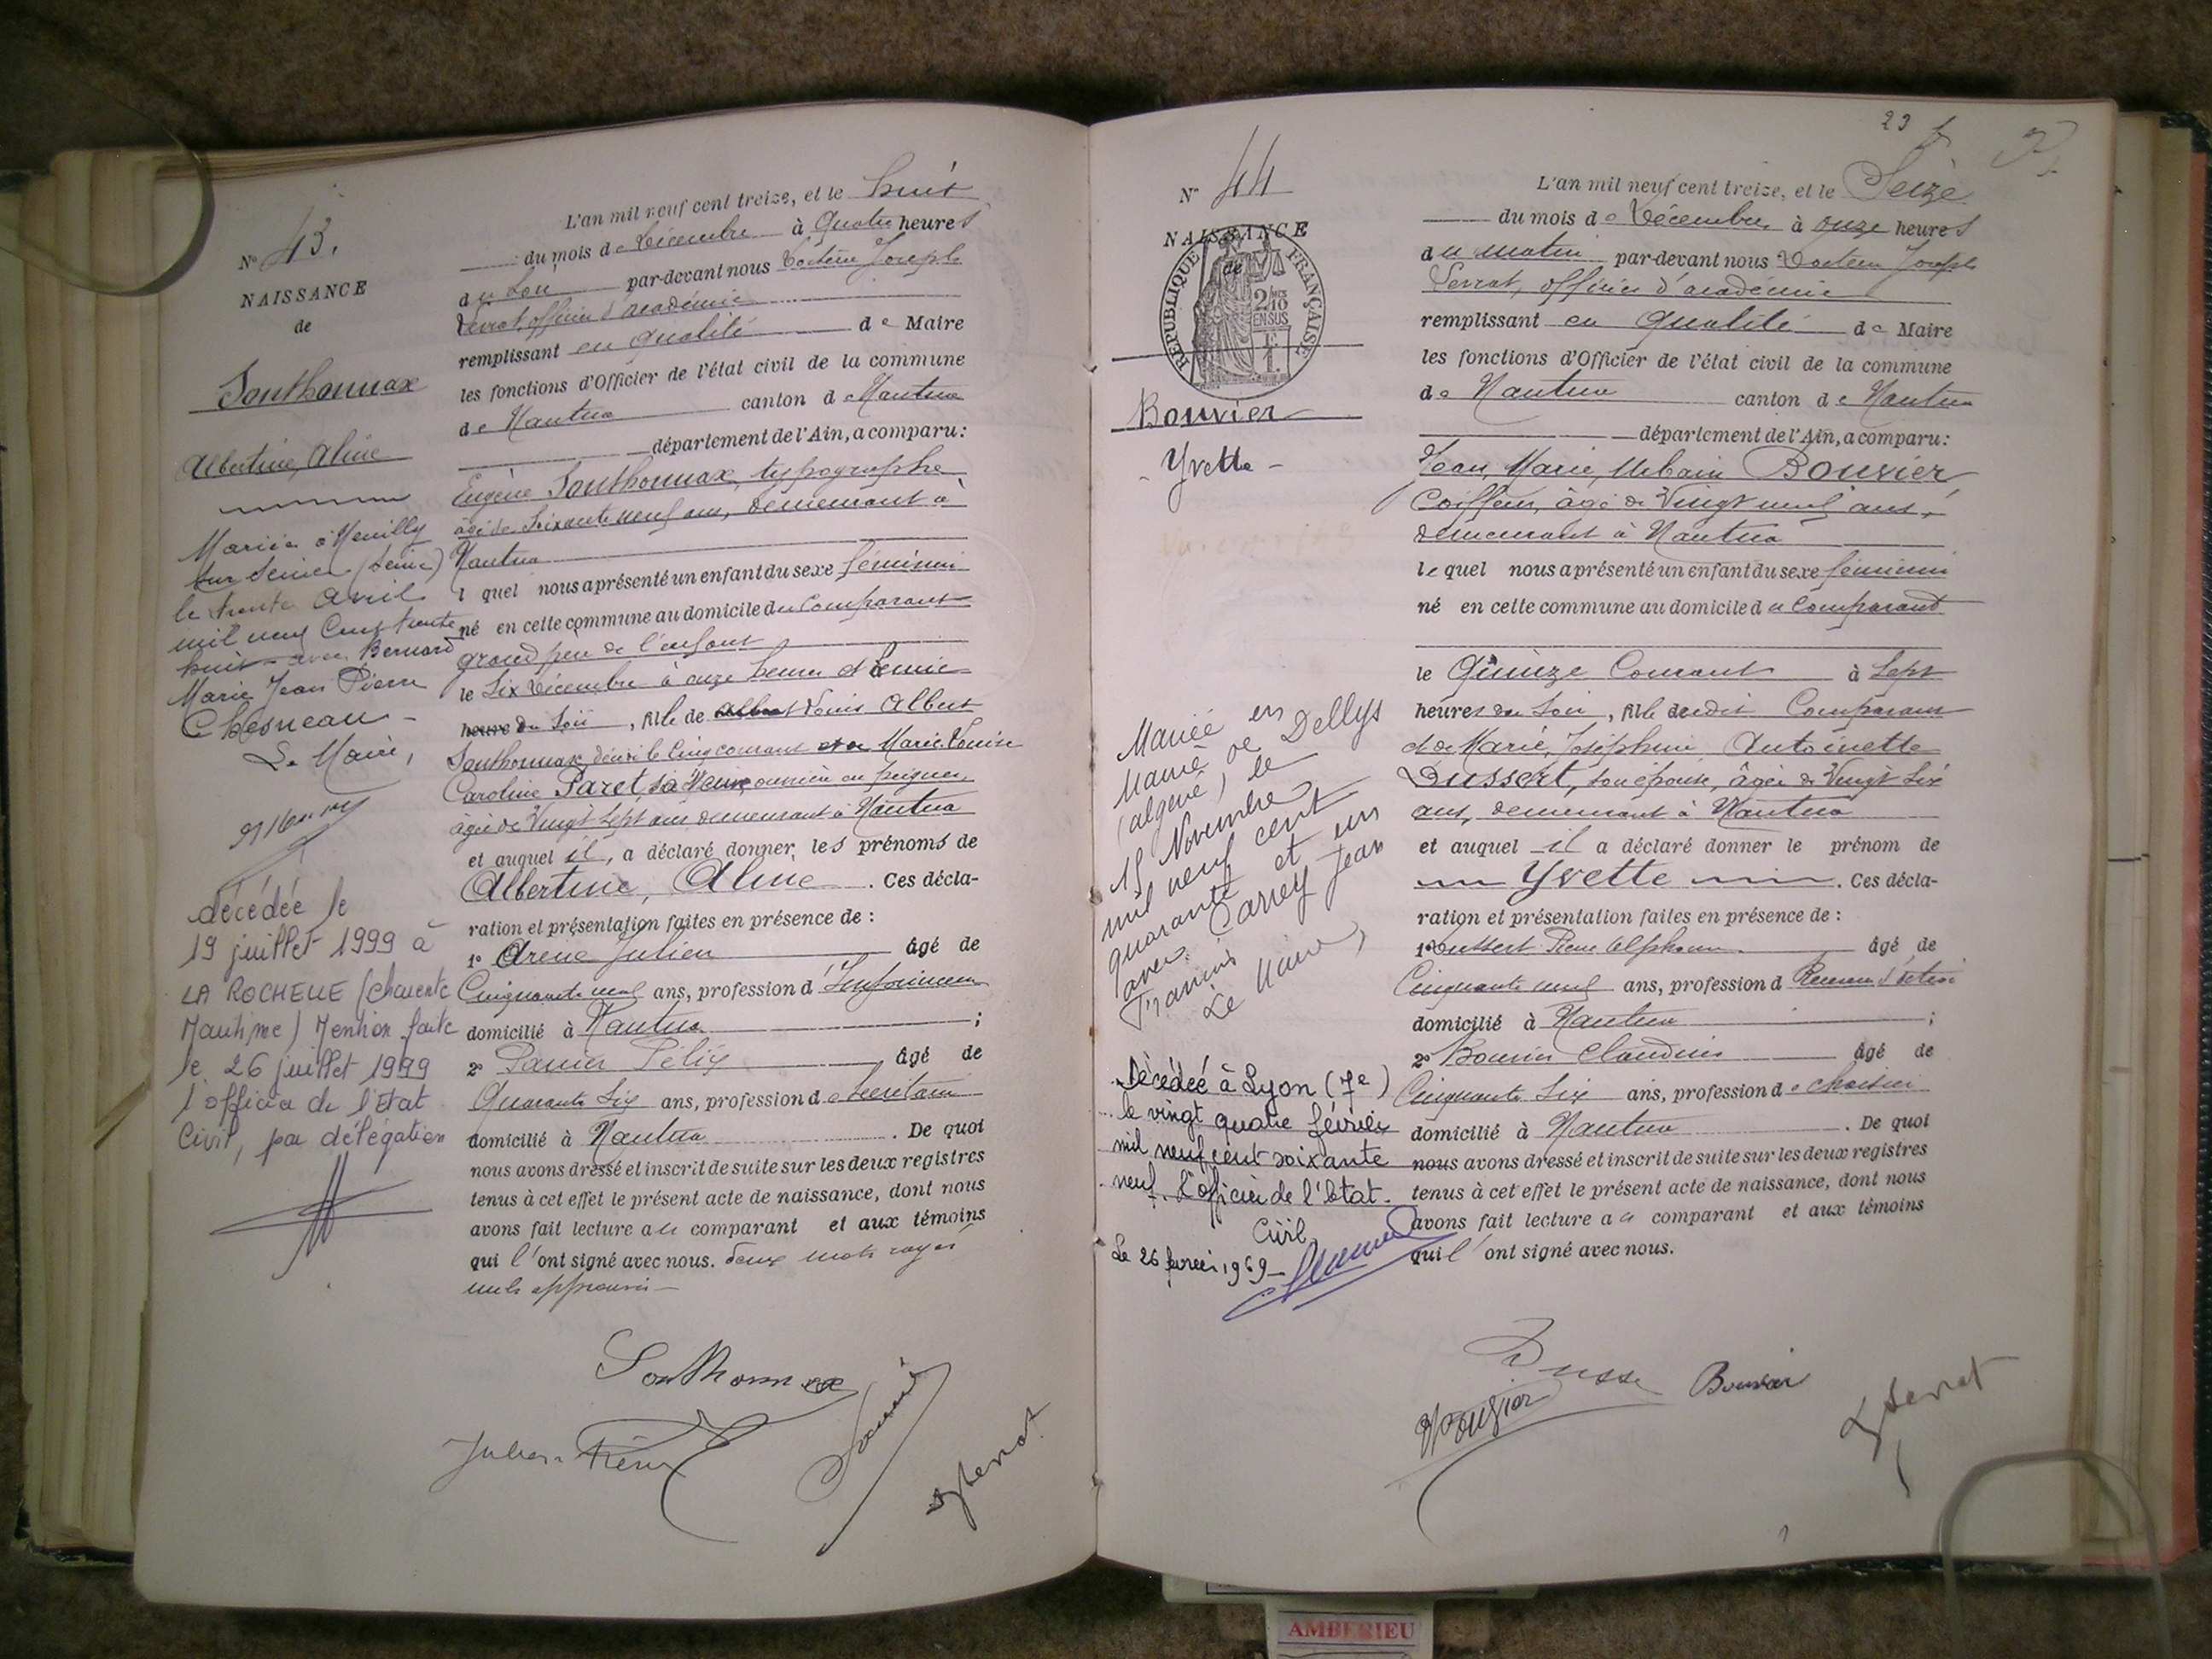 N° 43.
NAISSANCE
de
Southonnax
Albertine, Aline
Mariée à Neuilly
sur Seine (Seine)
le trente Avril
mil neuf Cent trente
huit avec Bernard
Marie Jean Pierre
Chesneau -
Le Maire,
décédée le
19 juillet 1999 à
LA ROCHELLE (Charente
Maritime) Mention faite
le 26 juillet 1999
l'officier de l'Etat
Civil, par délégation
L'an mil neuf cent treize, et le huit
du mois de Décembre à Quatre heures
du Soir par-devant nous Docteur Joseph
Servat, officier d'académie
remplissant en qualité de Maire
les fonctions d'Officier de l'état civil de la commune
de Nantua canton de Nantua
département de l'Ain, a comparu:
Eugène Southonnax, typographe
âgé de Soixante neuf ans, demeurant à
Nantua
l quel nous a présenté un enfant du sexe féminin
né en cette commune au domicile du Comparant
grand père de l'enfant
le Six Décembre à onze heures et demie
heure du Soir, fille de Albert Louis Albert
Southonnax, décédé le cinq courant et de Marie Louise
Caroline Paret sa Veuve, ouvrière en peignes,
âgée de Vingt Sept ans demeurant à Nantua
et auquel il, a déclaré donner les prénoms de
Albertine, Aline. Ces décla-
ration et présentation faites en présence de :
1° Arène Julien âgé de
Cinquante neuf ans, profession d'
domicilié à Nantua ;
2° Panier Félix âgé de
Quarante Six ans, profession de Secrétaire
domicilié à Nantua. De quoi
nous avons dressé et inscrit de suite sur les deux registres
tenus à cet effet le présent acte de naissance, dont nous
avons fait lecture au comparant et aux témoins
qui l'ont signé avec nous. deux mots rayés
nuls approuvés
Southonnax
Julien Arène
23
N° 44
NAISSANCE
de
REPUBLIQUE FRANÇAISE
2/10 EN SUS
Bouvier
- Yvette -
Mariée en
Mairie de Dellys
(algérie) le
15 Novembre
mil neuf cent
quarante et un
avec Carrey Jean
Francis
Le Maire,
Décédée à Lyon (7e)
le vingt quatre février
mil neuf cent soixante
neuf. L'officier de l'Etat
Civil
Le 26 février 1969
L'an mil neuf cent treize, et le Seize
du mois de Décembre à onze heures
du matin par-devant nous Docteur Joseph
Servat, officier d'académie
remplissant en qualité de Maire
les fonctions d'Officier de l'état civil de la commune
de Nantua canton de Nantua
département de l'Ain, a comparu:
Jean, Marie, Urbain Bouvier
Coiffeur, âgé de Vingt neuf ans,
demeurant à Nantua
le quel nous a présenté un enfant du sexe féminin
né en cette commune au domicile du Comparant
le Quinze Courant à Sept
heures du Soir, fille dudit Comparant
et de Marie, Joséphine Antoinette
Dussert, son épouse, âgée de Vingt Six
ans, demeurant à Nantua
et auquel il a déclaré donner le prénom de
Yvette. Ces décla-
ration et présentation faites en présence de :
1° Dussert Pierre Alphonse âgé de
Cinquante neuf ans, profession d
domicilié à Nantua ;
2° Bouvier Claudius âgé de
Cinquante Six ans, profession de
domicilié à Nantua. De quoi
nous avons dressé et inscrit de suite sur les deux registres
tenus à cet effet le présent acte de naissance, dont nous
avons fait lecture au comparant et aux témoins
qui l'ont signé avec nous.
Bouvier
AMBERIEU